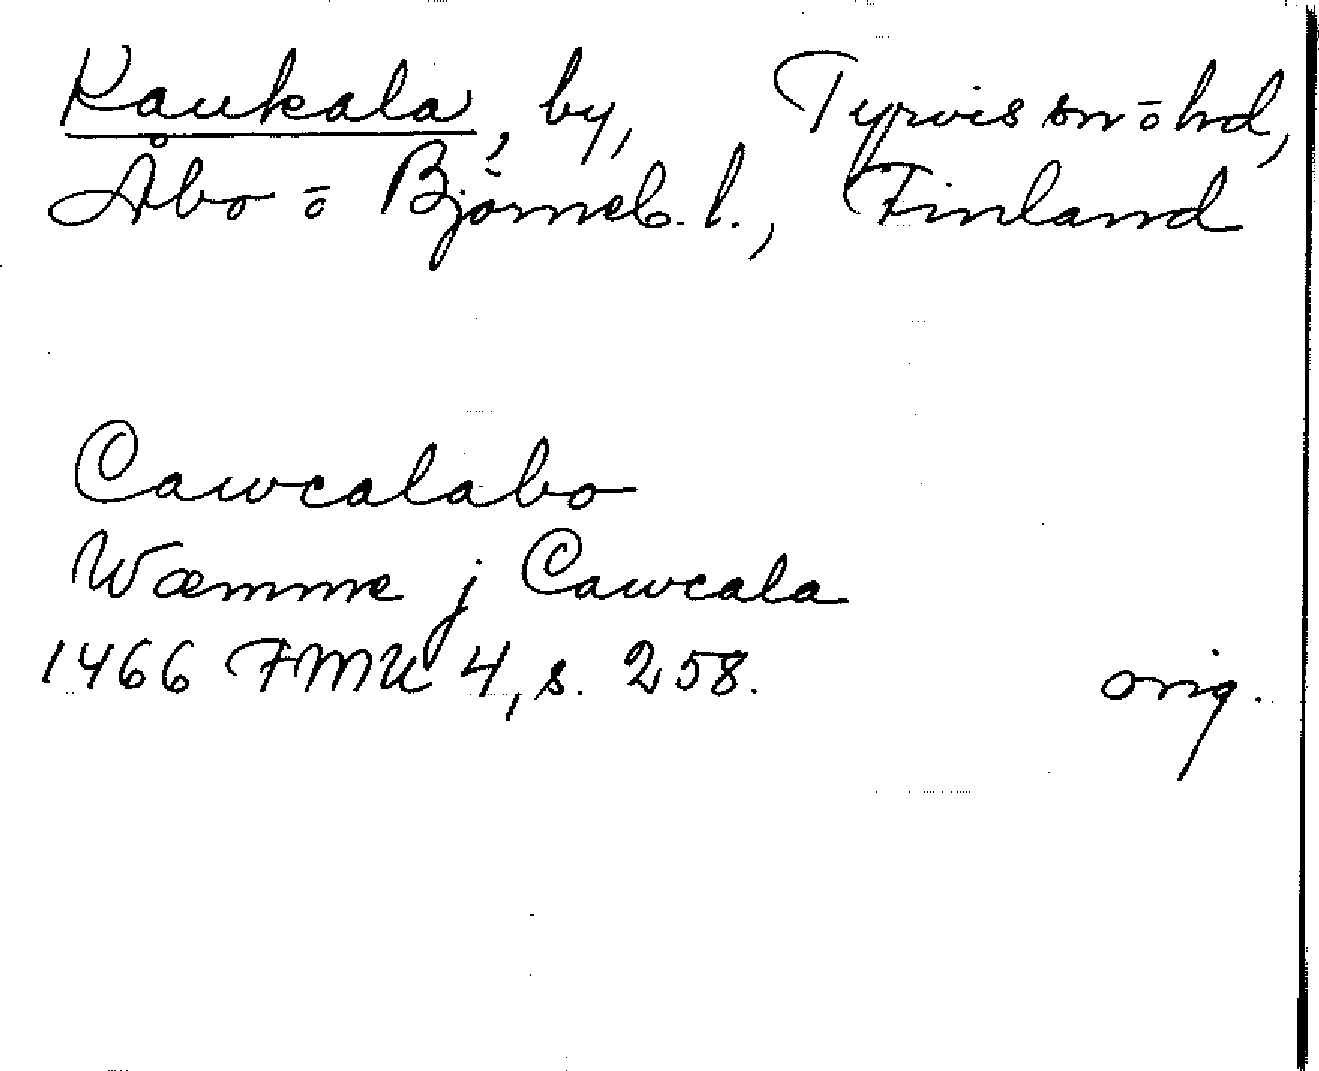 Kaukala, by, Tyrvis sn o hd,
Åbo o Björneb. l., Finland
Cawcalabo
Wæmme j Cawcala
1466 FMU 4, s. 258. orig.